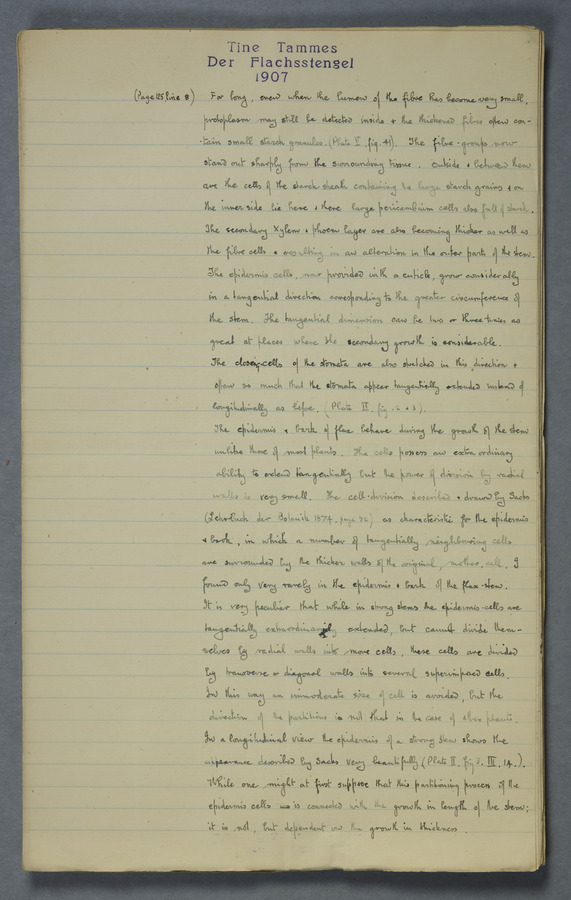 Tine Tammes
Der Flachsstengel
1907
(Page 125 line 8) For long, even when the lumen of the fibre has become very small,
protoplasm may still be detected inside & the thickened fibres often con-
-tain small starch granules. (Plate V, fig. 41). The fibre-groups now
stand out sharply from the surrounding tissue. Outside & between them
are the cells of the starch sheath containing the large starch grains & on
the inner side lie here & there large pericambium cells also full of starch.
The secondary xylem & phloem layer are also becoming thicker as well as
the fibre cells & resulting in an alteration in the outer parts of the stem.
The epidermis cells, now provided with a cuticle, grow considerably
in a tangential direction corresponding to the greater circumference of
the stem. The tangential dimension can be two or three times as
great at places where the secondary growth is considerable.
The closing-cells of the stomata are also stretched in this direction &
often so much that the stomata appear tangentially extended instead of
longitudinally as before. (Plate II. fig. 2 & 3).
The epidermis & bark of flax behave during the growth of the stem
unlike those of most plants. The cells possess an extraordinary
ability to extend tangentially but the power of division by radial
walls is very small. The cell-division described & drawn by Sachs
(Lehrbuch der Botanik 1874. page 92) as characteristic for the epidermis
& bark, in which a number of tangentially neighbouring cells
are surrounded by the thicker walls of the original mother cell, I
found only very rarely in the epidermis & bark of the flax-stem.
It is very peculiar that while in strong stems the epidermis-cells are
tangentially extraordinarily extended, but cannot divide them-
selves by radial walls into more cells, these cells are divided
by transverse or diagonal walls into several superimposed cells.
In this way an immoderate size of cell is avoided, but the
direction of the partitions is not that in the case of other plants.
In a longitudinal view the epidermis of a strong stem shows the
appearance described by Sachs very beautifully (Plate II. fig 3. III. 14.).
While one might at first suppose that this partitioning process of the
epidermis cells is connected with the growth in length of the stem;
it is not, but dependent on the growth in thickness.